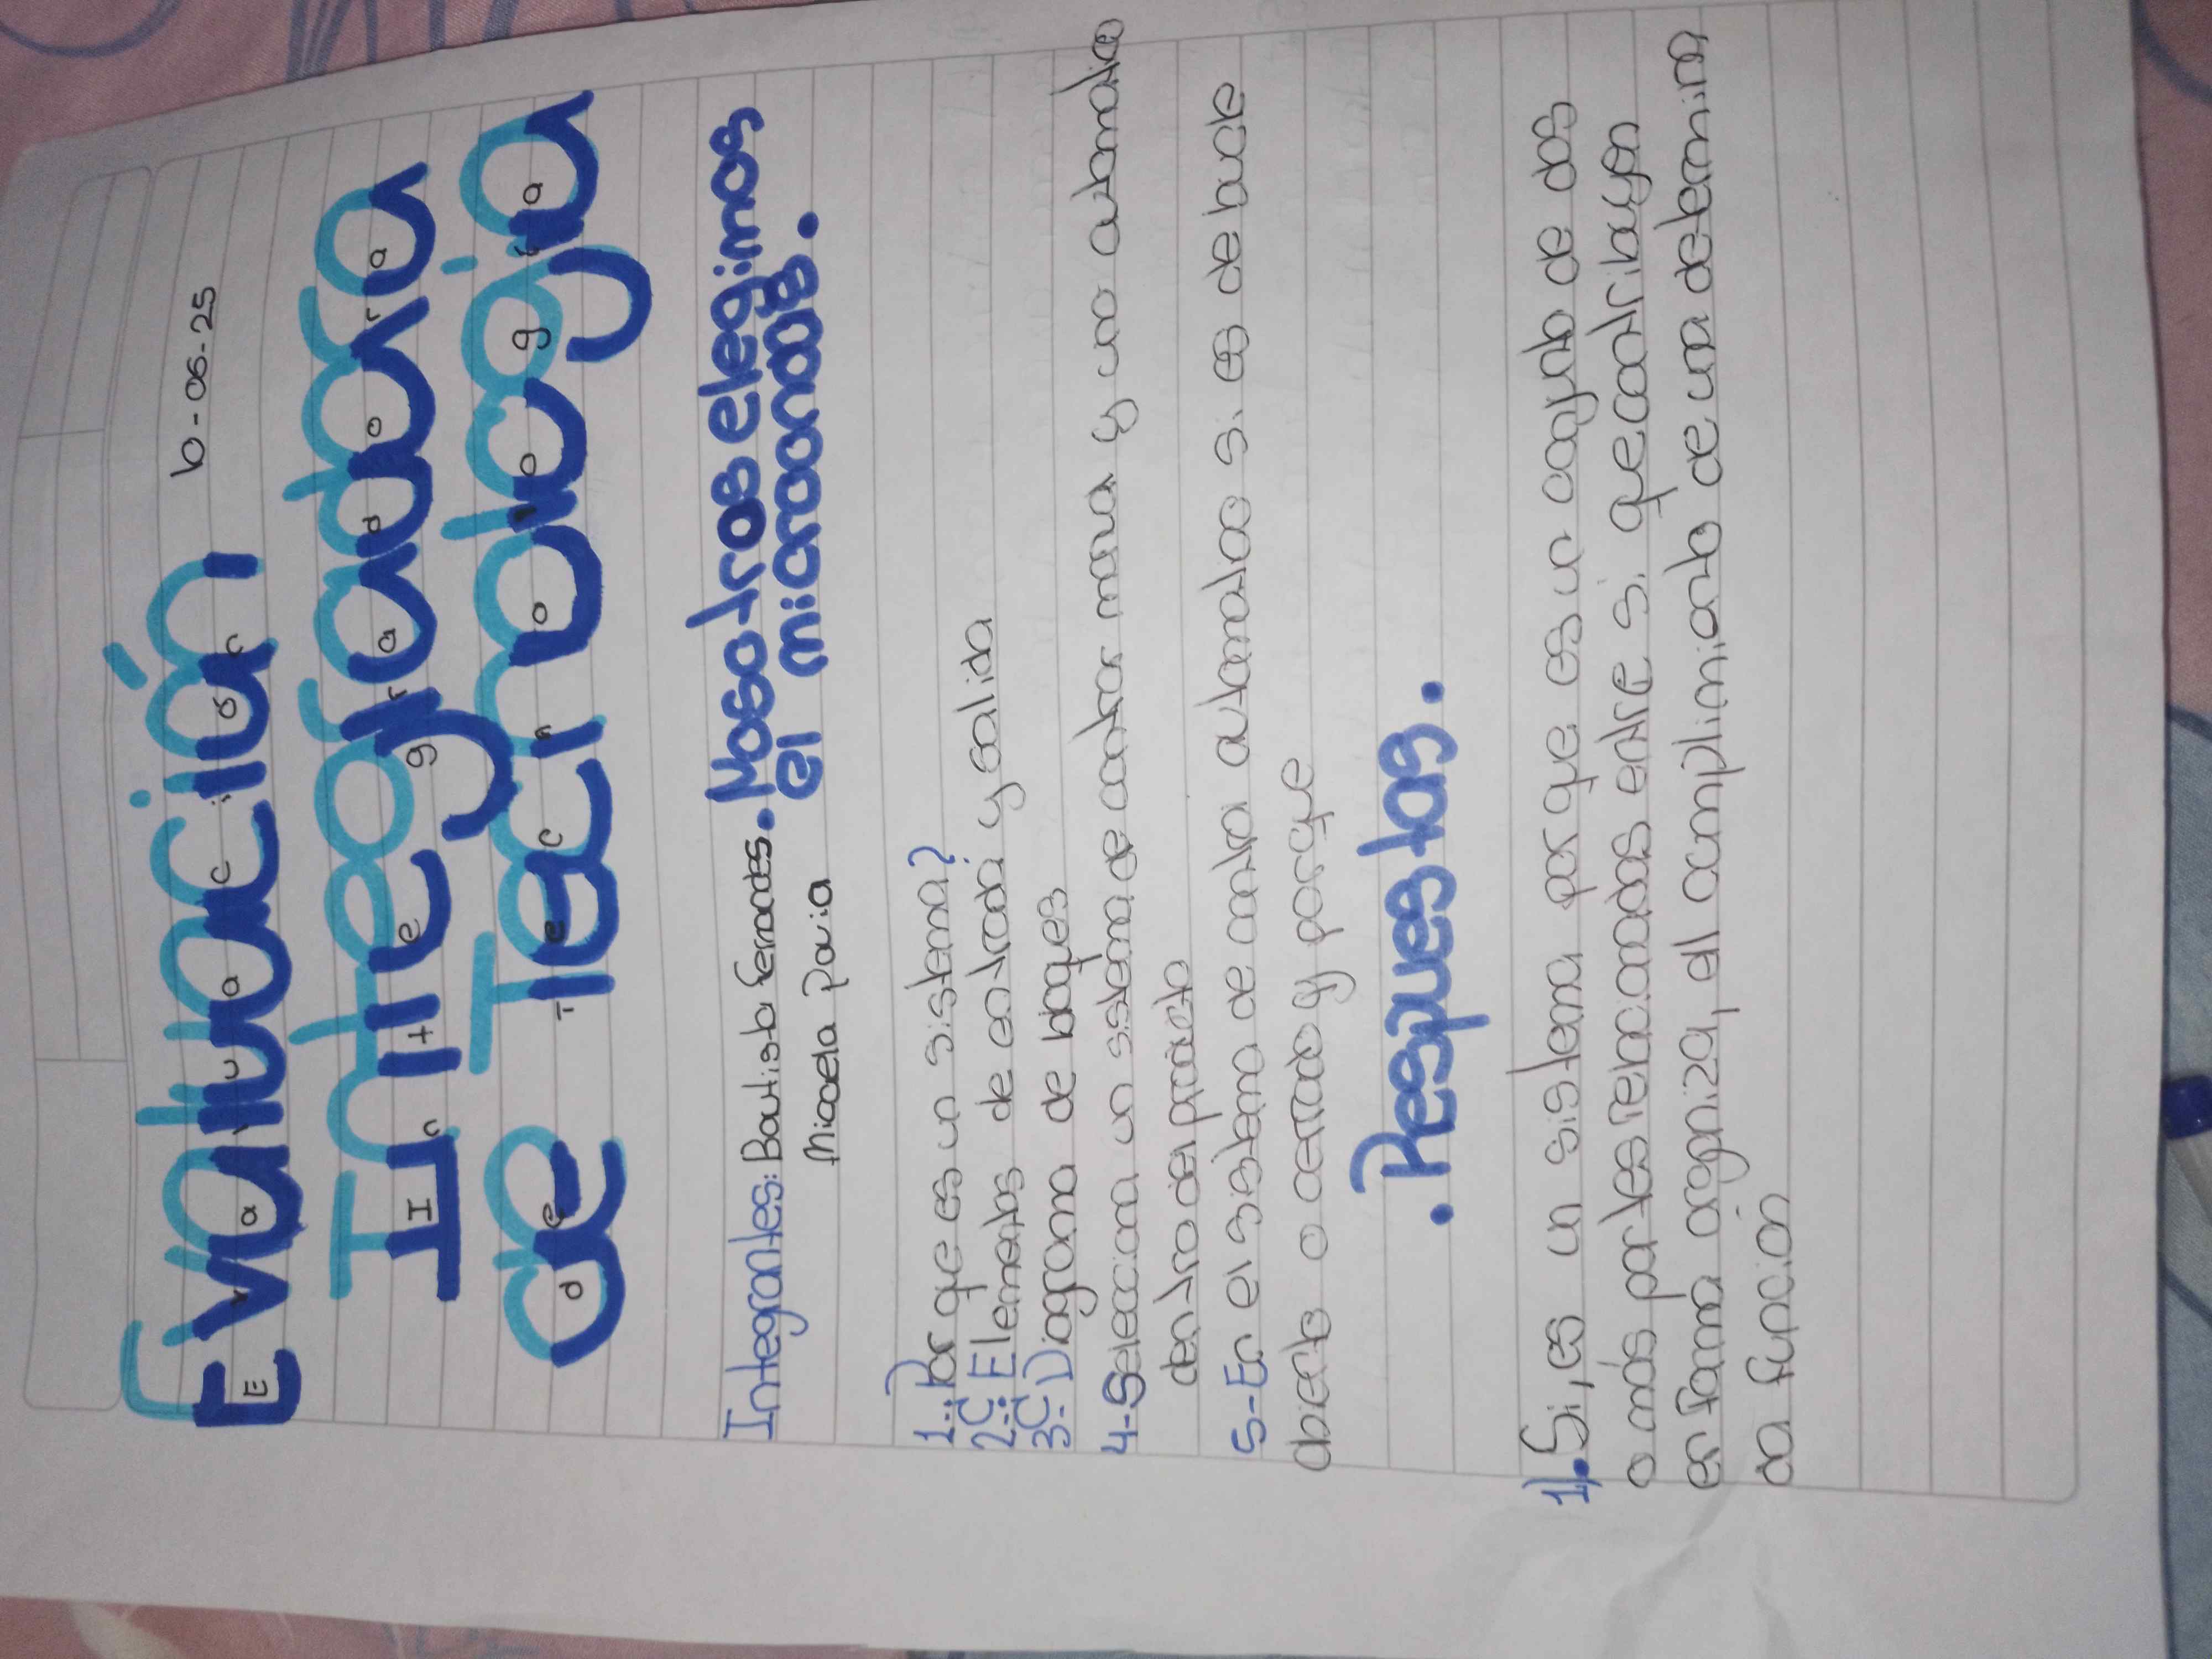 Evaluación 6-06-25
Integradora
de Tecnología
Integrantes: Bautista Fernandes. Nosotros elegimos
Micaela Pavia el microondas.
1- Por que es un sistema?
2- Elementos de entrada y salida
3- Diagrama de bloques
4- Selecciona un sistema de control manual y uno automatico
dentro del producto
5- En el sistema de control automatico si es de bucle
abierto o cerrado y porque
. Respuestas.
1). Si, es un sistema porque es un conjunto de dos
o más partes relacionadas entre si que contribuyen
en forma organiza, el cumplimiento de una determina
da función